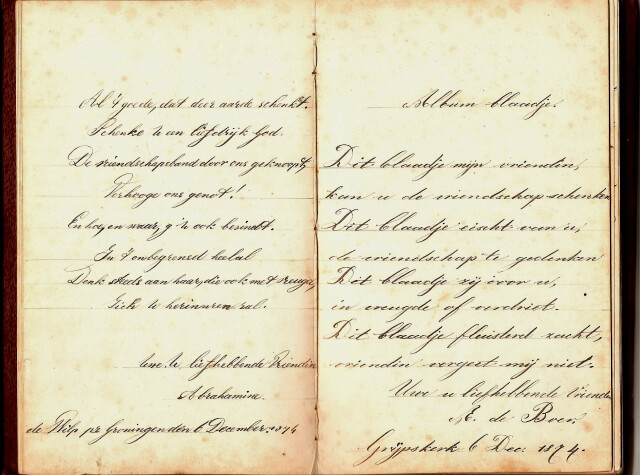 Al 't goede, dat deez' aarde schenkt.
Schenke u een liefdrijk God.
De vriendschapsband door ons geknoopt,
Verhooge ons genot!
En hoe, en waar, g' u ook bevindt.
In 't onbegrensd heelal
Denk steeds aan haar, die ook met vreugd,
Zich u herinneren zal.
Uwe u liefhebbende Vriendin
Abrahamina.
de Wilp p/r Groningen den 6 December. 1874
Album blaadje.
Dit blaadje mijn vriendin,
kan u de vriendschap schenken
Dit blaadje eischt van u,
de vriendschap te gedenken
Dit blaadje zij voor u,
in vreugde of verdriet.
Dit blaadje fluisterd zacht,
vriendin vergeet mij niet.
Uwe u liefhebbende Vriendin
E. de Boer.
Grijpskerk 6 Dec. 1874.